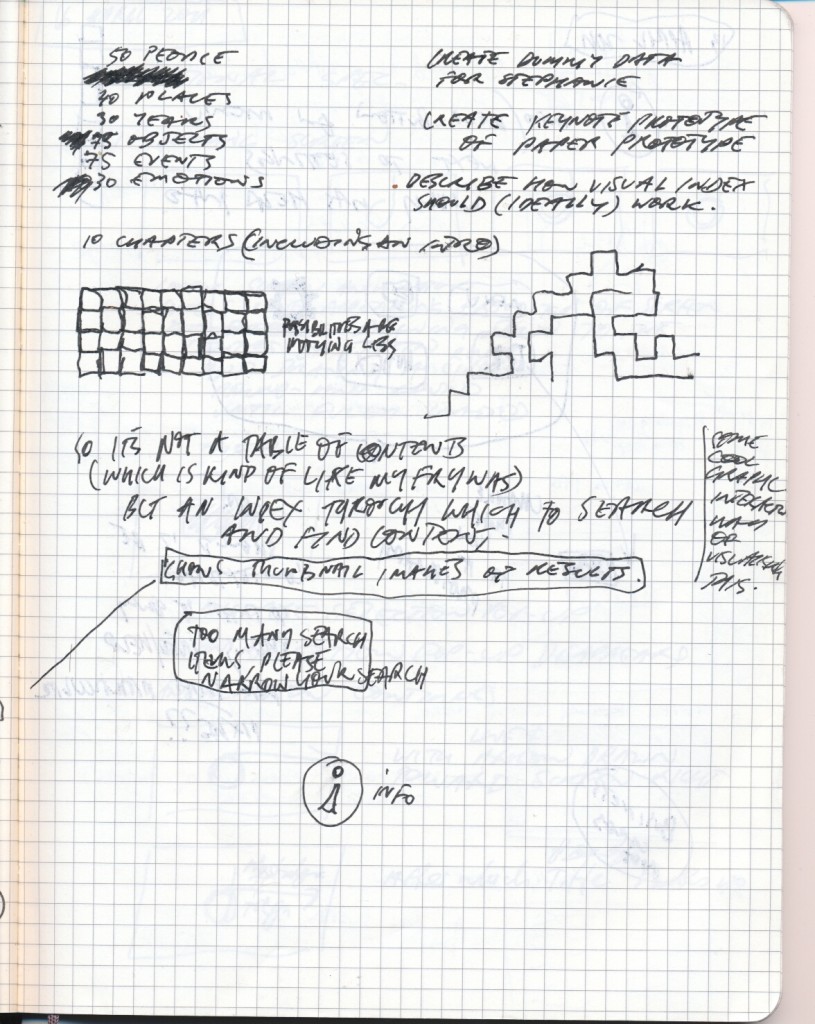 50 PEOPLE
30 YEARS
75 OBJECTS
75 EVENTS
30 EMOTIONS
CREATE DUMMY DATA
FOR STEPHANIE
CREATE KEYNOTE PROTOTYPE
OF PAPER PROTOTYPE
. DESCRIBE HOW VISUAL INDEX
SHOULD (IDEALLY) WORK.
10 CHAPTERS (INCLUDING AN INTRO)
SO IT'S NOT A TABLE OF CONTENTS
(WHICH IS KIND OF LIKE MYFRY WAS)
BUT AN INDEX THROUGH WHICH TO SEARCH
AND FIND CONTENT.
SOME
COOL
GRAPHIC
OF
THIS.
SHOWS THUMBNAIL IMAGES OF RESULTS.
TOO MANY SEARCH
ITEMS, PLEASE
NARROW YOUR SEARCH
i INFO